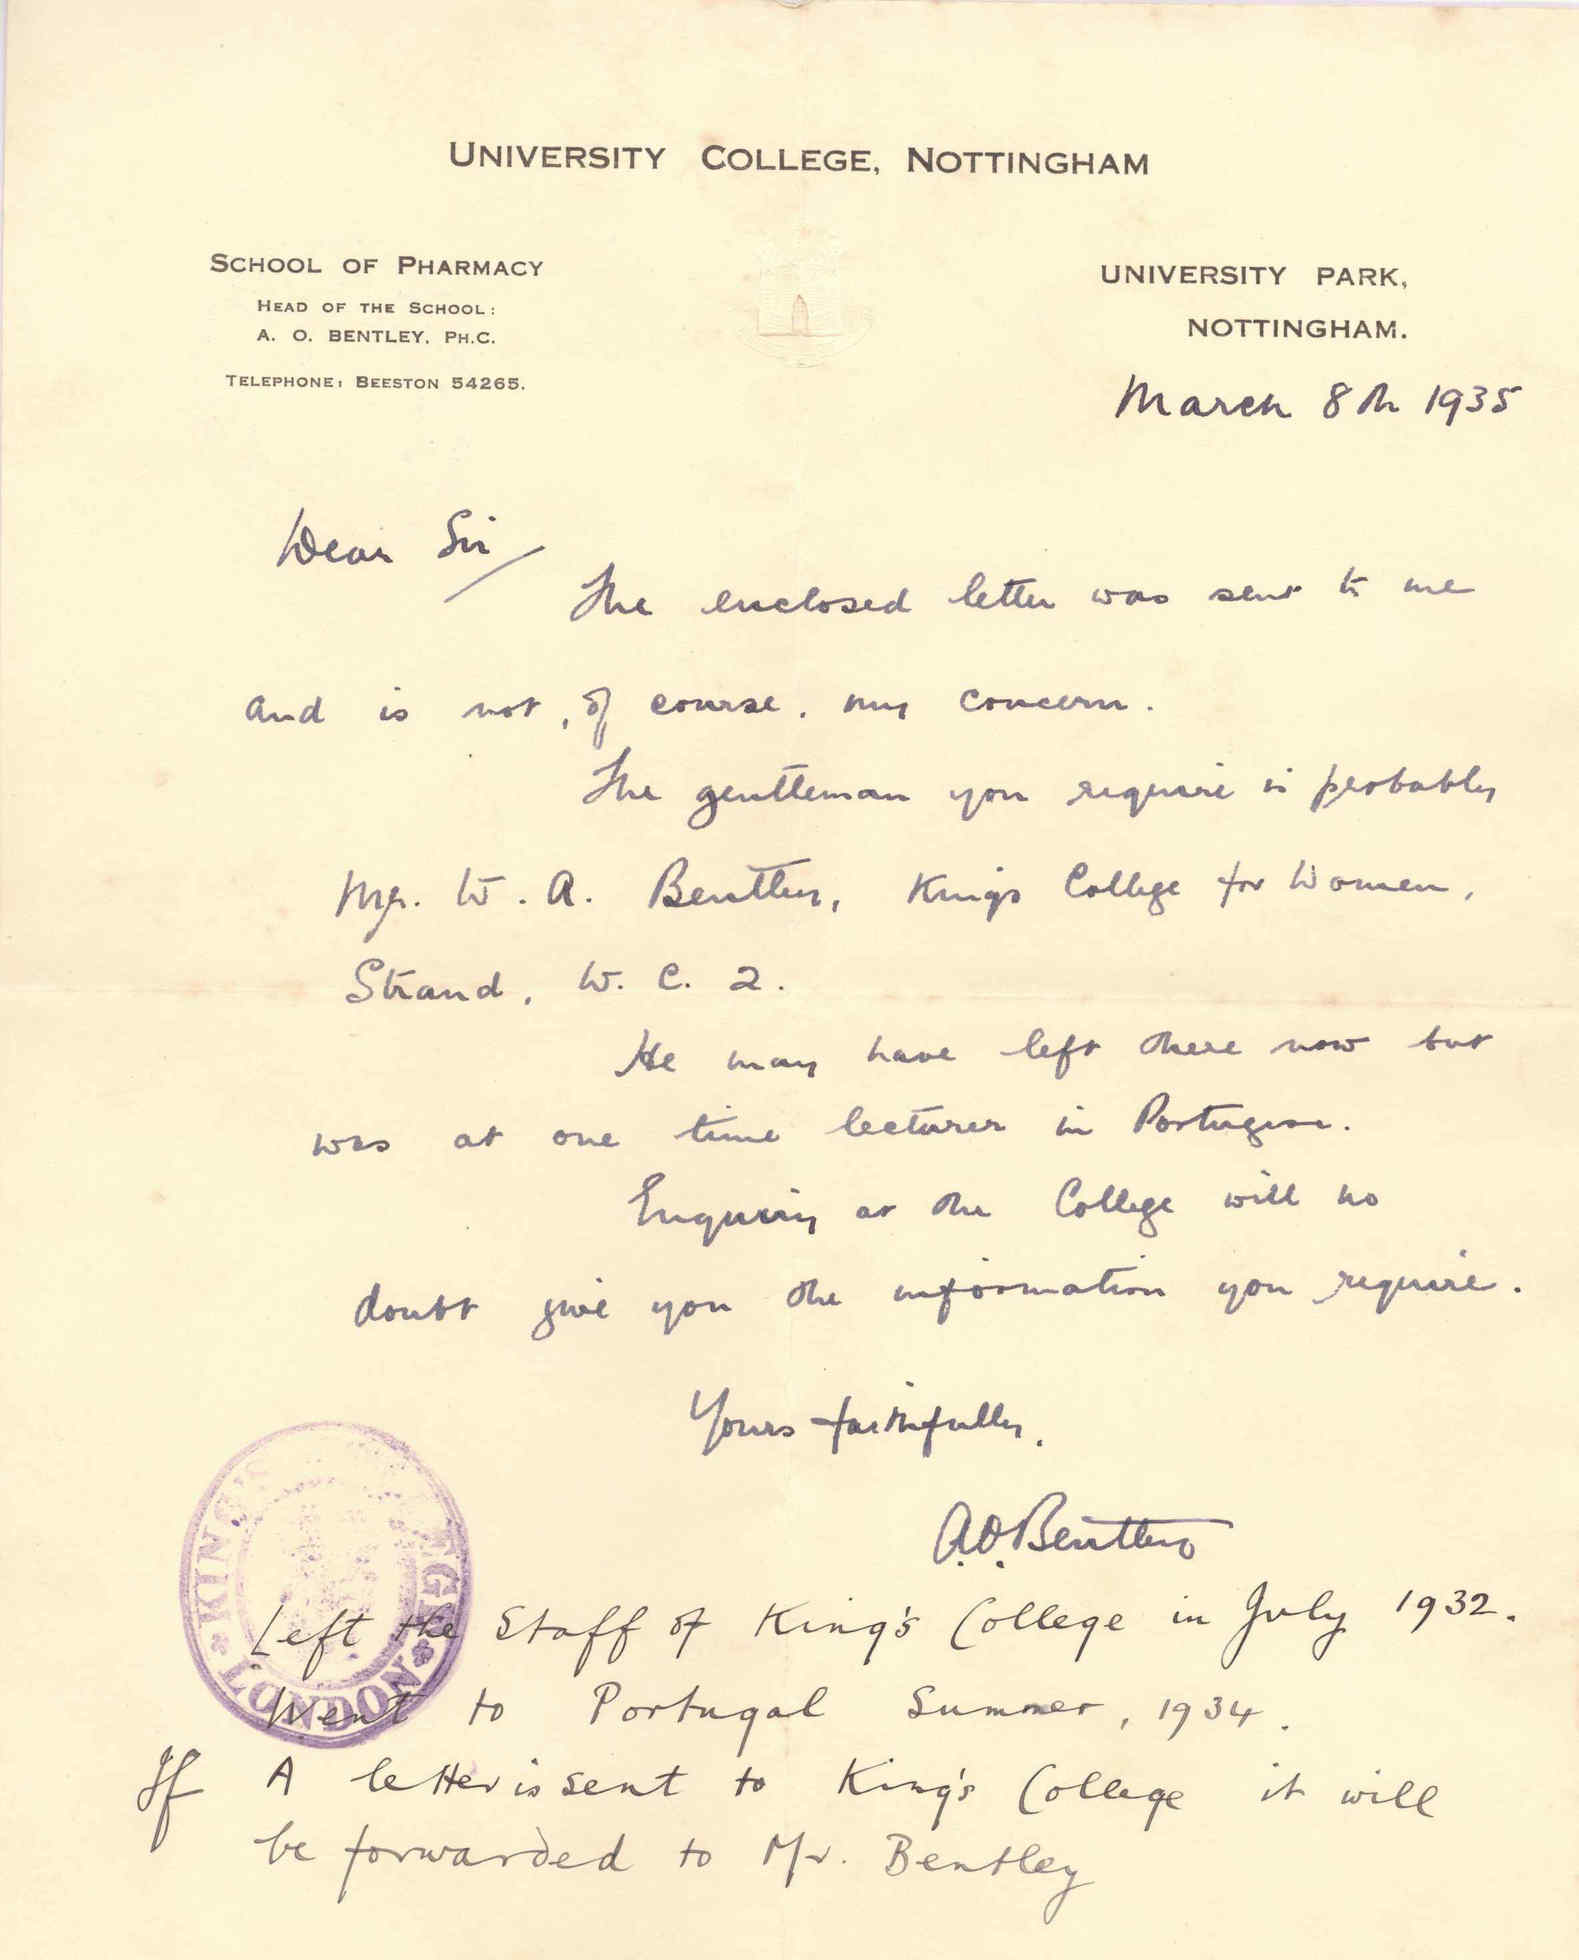 UNIVERSITY COLLEGE, NOTTINGHAM
SCHOOL OF PHARMACY
HEAD OF THE SCHOOL:
A. O. BENTLEY, PH.C.
TELEPHONE: BEESTON 54265.
UNIVERSITY PARK,
NOTTINGHAM.
March 8th 1935
Dear Sir/
The enclosed letter was sent to me
and is not, of course, my concern.
The gentleman you require is probably
Mr. W. A. Bentley, Kings College for Women,
Strand, W. C. 2.
He may have left there now but
was at one time lecturer in Portugese.
Enquiry at the College will no
doubt give you the information you require.
Yours faithfully,
A.O. Bentley
KING'S LONDON
Left the Staff of King's College in July 1932.
Went to Portugal Summer, 1934.
If A letter is sent to King's College it will
be forwarded to Mr. Bentley